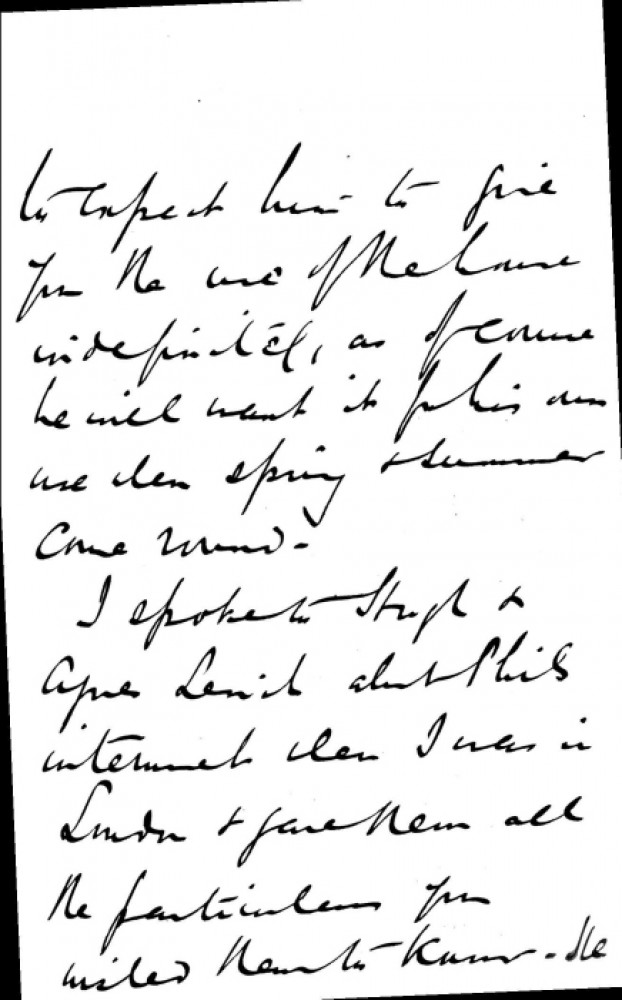 to expect him to give
you the use of the house
indefinitely, as of course
he will want it for his own
use when spring & summer
come round -
I spoke to Hugh &
Agnes about Phil's
interment when I was in
London & gave them all
the particulars you
wished them to know - He